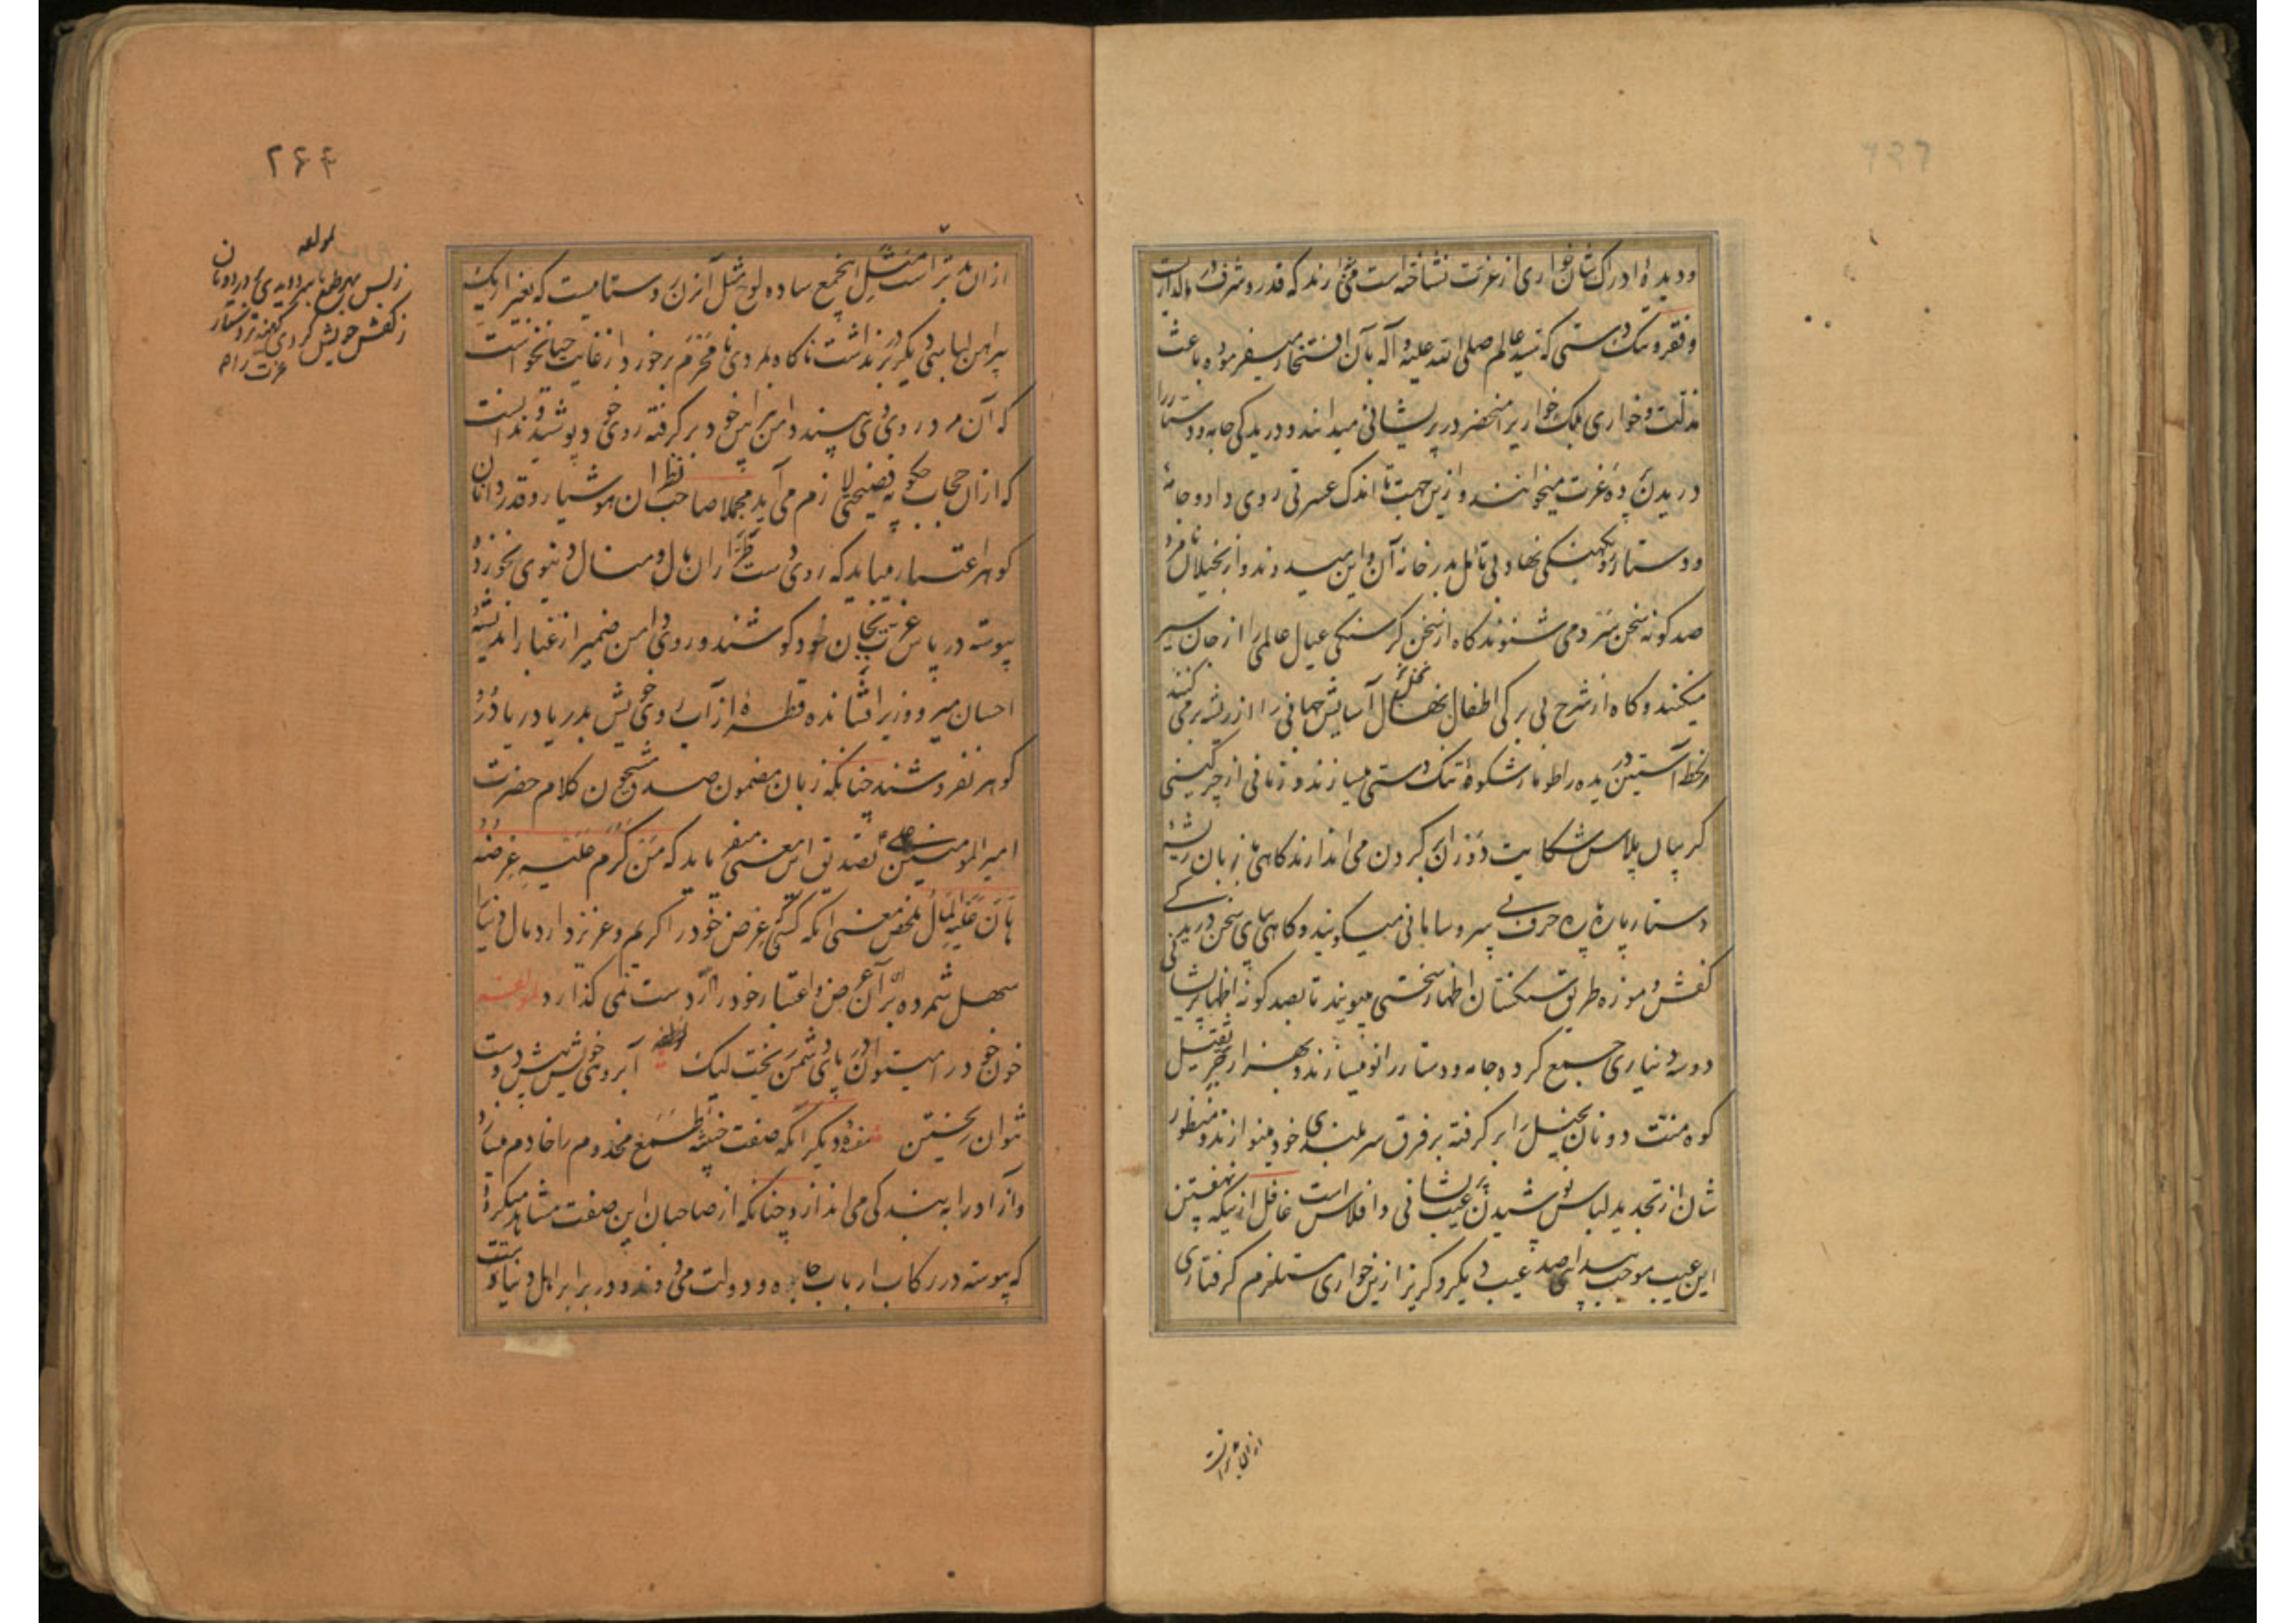 ودیدهٔ ادراک شان خواری از عزت نشناخته است می پندارند که قدر و شرف در مالداریست
و فقر و تنک دستی که سید عالم صلی الله علیه و آله بآن افتخار میفرموده باعث
مذلت و خواری بلک خواریرا منحصر در پریشانی میدانند و دریدکی جامه و دستار را
دریدن پردهٔ عزت میخوانند و ازین جهت تا اندک عسرتی روی داد و جامهٔ
و دستار رو بکهنکی نهاد بی تأمل بدر خانهٔ آن و این میدوند و از بخیلان نامرد
صد کونه سخن سرد می شنوند کاه از سخن کرسنکی عیال عالمی را از جان سیر
میکنند و کاه از شرح بی برکی اطفال نهال آسایش جهانی را از ریشه برمی کنند
آستین دریده را طومار شکوهٔ تنک دستی میسازند و زمانی از چرکینی
کریبان پلاس شکایت دوران بر کردن می اندازند کاهی بزبان ریشهٔ
دستار پاره پاره حرف بی سر و سامانی میکویند و کاهی بپای سخن دریدکی
کفش و موزه طریق شکستان اظهار سختی میپویند تا بصد کونه اظهار پریشانی
دو سه دیناری جمع کرده جامه و دستار را نو میسازند و بهزار جرثقیل
کوه منت دونان بخیل را بر کرفته بر فرق سربلندی خود مینوازند و منظور
شان از تجدید لباس پوشیدن عیب پریشانی و افلاس است غافل ازینکه نهفتن
این عیب موجب پیدایی صد عیب دیکر و کریز ازین خواری مستلزم کرفتاری
از ان بدتر است
۲۶۴
لمولفه
ز کفش خویش کردی
عزت راه
از ان بدتر است مثل اینجمع ساده لوح مثل آن زن روستاییست که بغیر از یک
پیراهن لباسی دیکر در بر نداشت ناکاه بمردی نامحرم برخورد از غایت حیا نخواست
که آن مرد روی وی بیند دامن پیراهن خود بر کرفته روی خود پوشید و ندانست
که از ان حجاب چکونه فضیحتی لازم می آید مجملا صاحب نظران هوشیار و قدر دانان
کوهر اعتبار میباید که روی دست نظر از ان مال و منال دنیوی نخورند
پیوسته در پاس عزت خود کوشند و روی دامن ضمیر از غبار اندیشهٔ
احسان میر و وزیر افشانده قطرهٔ از آب روی خویش بدریا دریا در و
کوهر نفروشند چنانکه زبان مضمون صدق مشحون کلام حضرت
امیرالمومنین علی تصدیق این معنی میفرماید که مَنْ کَرُمَ عَلَیهِ عِرضُهُ
هَانَ عَلَیهِ المَالُ ملخص معنی آنکه کسی عرض خود را کریم و عزیز دارد مال دنیا
سهل شمرده برای آن عرض و اعتبار خود را از دست نمی کذارد لمولفه
خون خود را میتوان در پای دشمن ریخت لیک آبروی خویش پیش دوست
نتوان ریختن مفسدهٔ دیکر آنکه صفت خبیثهٔ طمع مخدوم را خادم میسازد
و آزاد را به بندکی می اندازد چنانکه از صاحبان این صفت مشاهد میکردد
که پیوسته در رکاب ارباب جاه و دولت می دوند و در برابر اهل دنیا دست